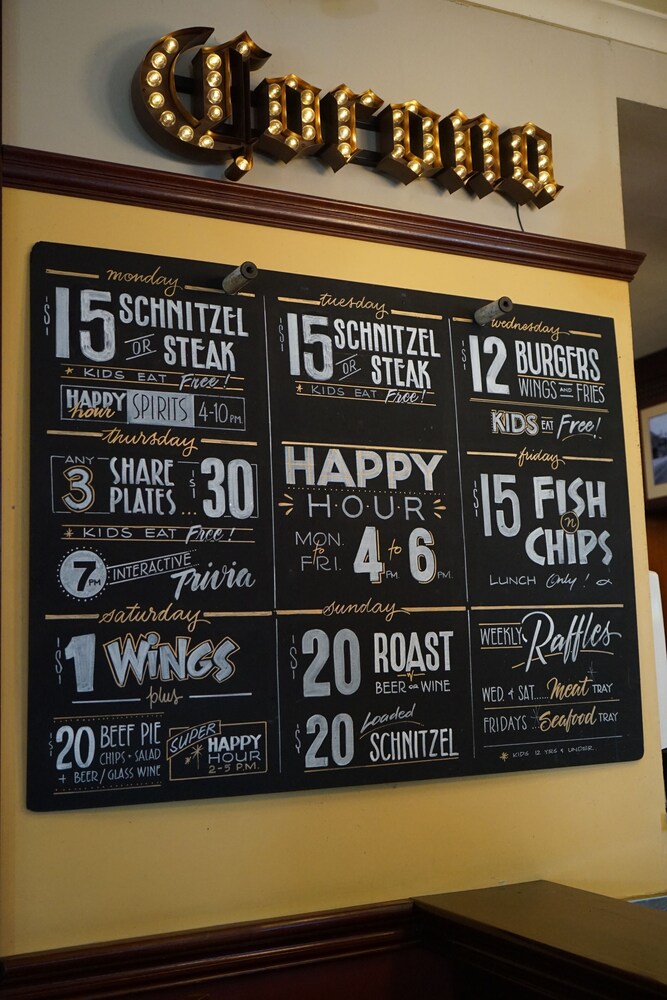 Corona
monday
$15 SCHNITZEL
OR STEAK
* KIDS EAT Free!
HAPPY hour SPIRITS 4-10 PM.
tuesday
$15 SCHNITZEL
OR STEAK
* KIDS EAT Free!
wednesday
$12 BURGERS
WINGS AND FRIES
KIDS EAT Free!
thursday
ANY 3 SHARE PLATES... $30
* KIDS EAT Free!
7PM INTERACTIVE Trivia
HAPPY
HOUR
MON. to FRI. 4 PM. to 6 PM.
friday
$15 FISH
n
CHIPS
LUNCH Only!
saturday
$1 WINGS
plus
$20 BEEF PIE
CHIPS + SALAD
+ BEER/GLASS WINE
SUPER HAPPY
HOUR
2-5 P.M.
sunday
$20 ROAST
w
BEER OR WINE
$20 Loaded
SCHNITZEL
WEEKLY Raffles
WED. & SAT...... Meat TRAY
FRIDAYS Seafood TRAY
* KIDS 12 YRS & UNDER..